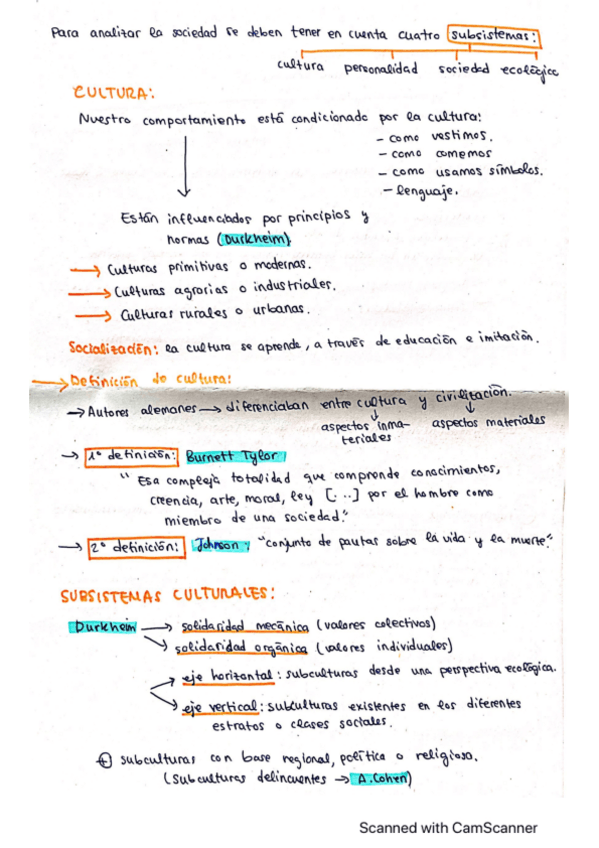 Para analizar la sociedad se deben tener en cuenta cuatro subsistemas:
cultura personalidad sociedad ecológico
CULTURA:
Nuestro comportamiento está condicionado por la cultura:
- como vestimos.
- como comemos
- como usamos símbolos.
- lenguaje.
Están influenciados por principios y
normas (Durkheim)
→ Culturas primitivas o modernas.
→ Culturas agrarias o industriales.
→ Culturas rurales o urbanas.
Socialización: la cultura se aprende, a través de educación e imitación.
→ Definición de cultura:
→ Autores alemanes → diferenciaban entre cultura y civilización.
aspectos inma- aspectos materiales
teriales
→ 1º definición: Burnett Tylor:
"Esa compleja totalidad que comprende conocimientos,
creencia, arte, moral, ley [...] por el hombre como
miembro de una sociedad."
→ 2º definición: Johnson: "conjunto de pautas sobre la vida y la muerte."
SUBSISTEMAS CULTURALES:
Durkheim → solidaridad mecánica (valores colectivos)
→ solidaridad orgánica (valores individuales)
→ eje horizontal: subculturas desde una perspectiva ecológica.
→ eje vertical: subculturas existentes en los diferentes
estratos o clases sociales.
+ subculturas con base regional, política o religioso.
(Subculturas delincuentes → A. Cohen)
Scanned with CamScanner